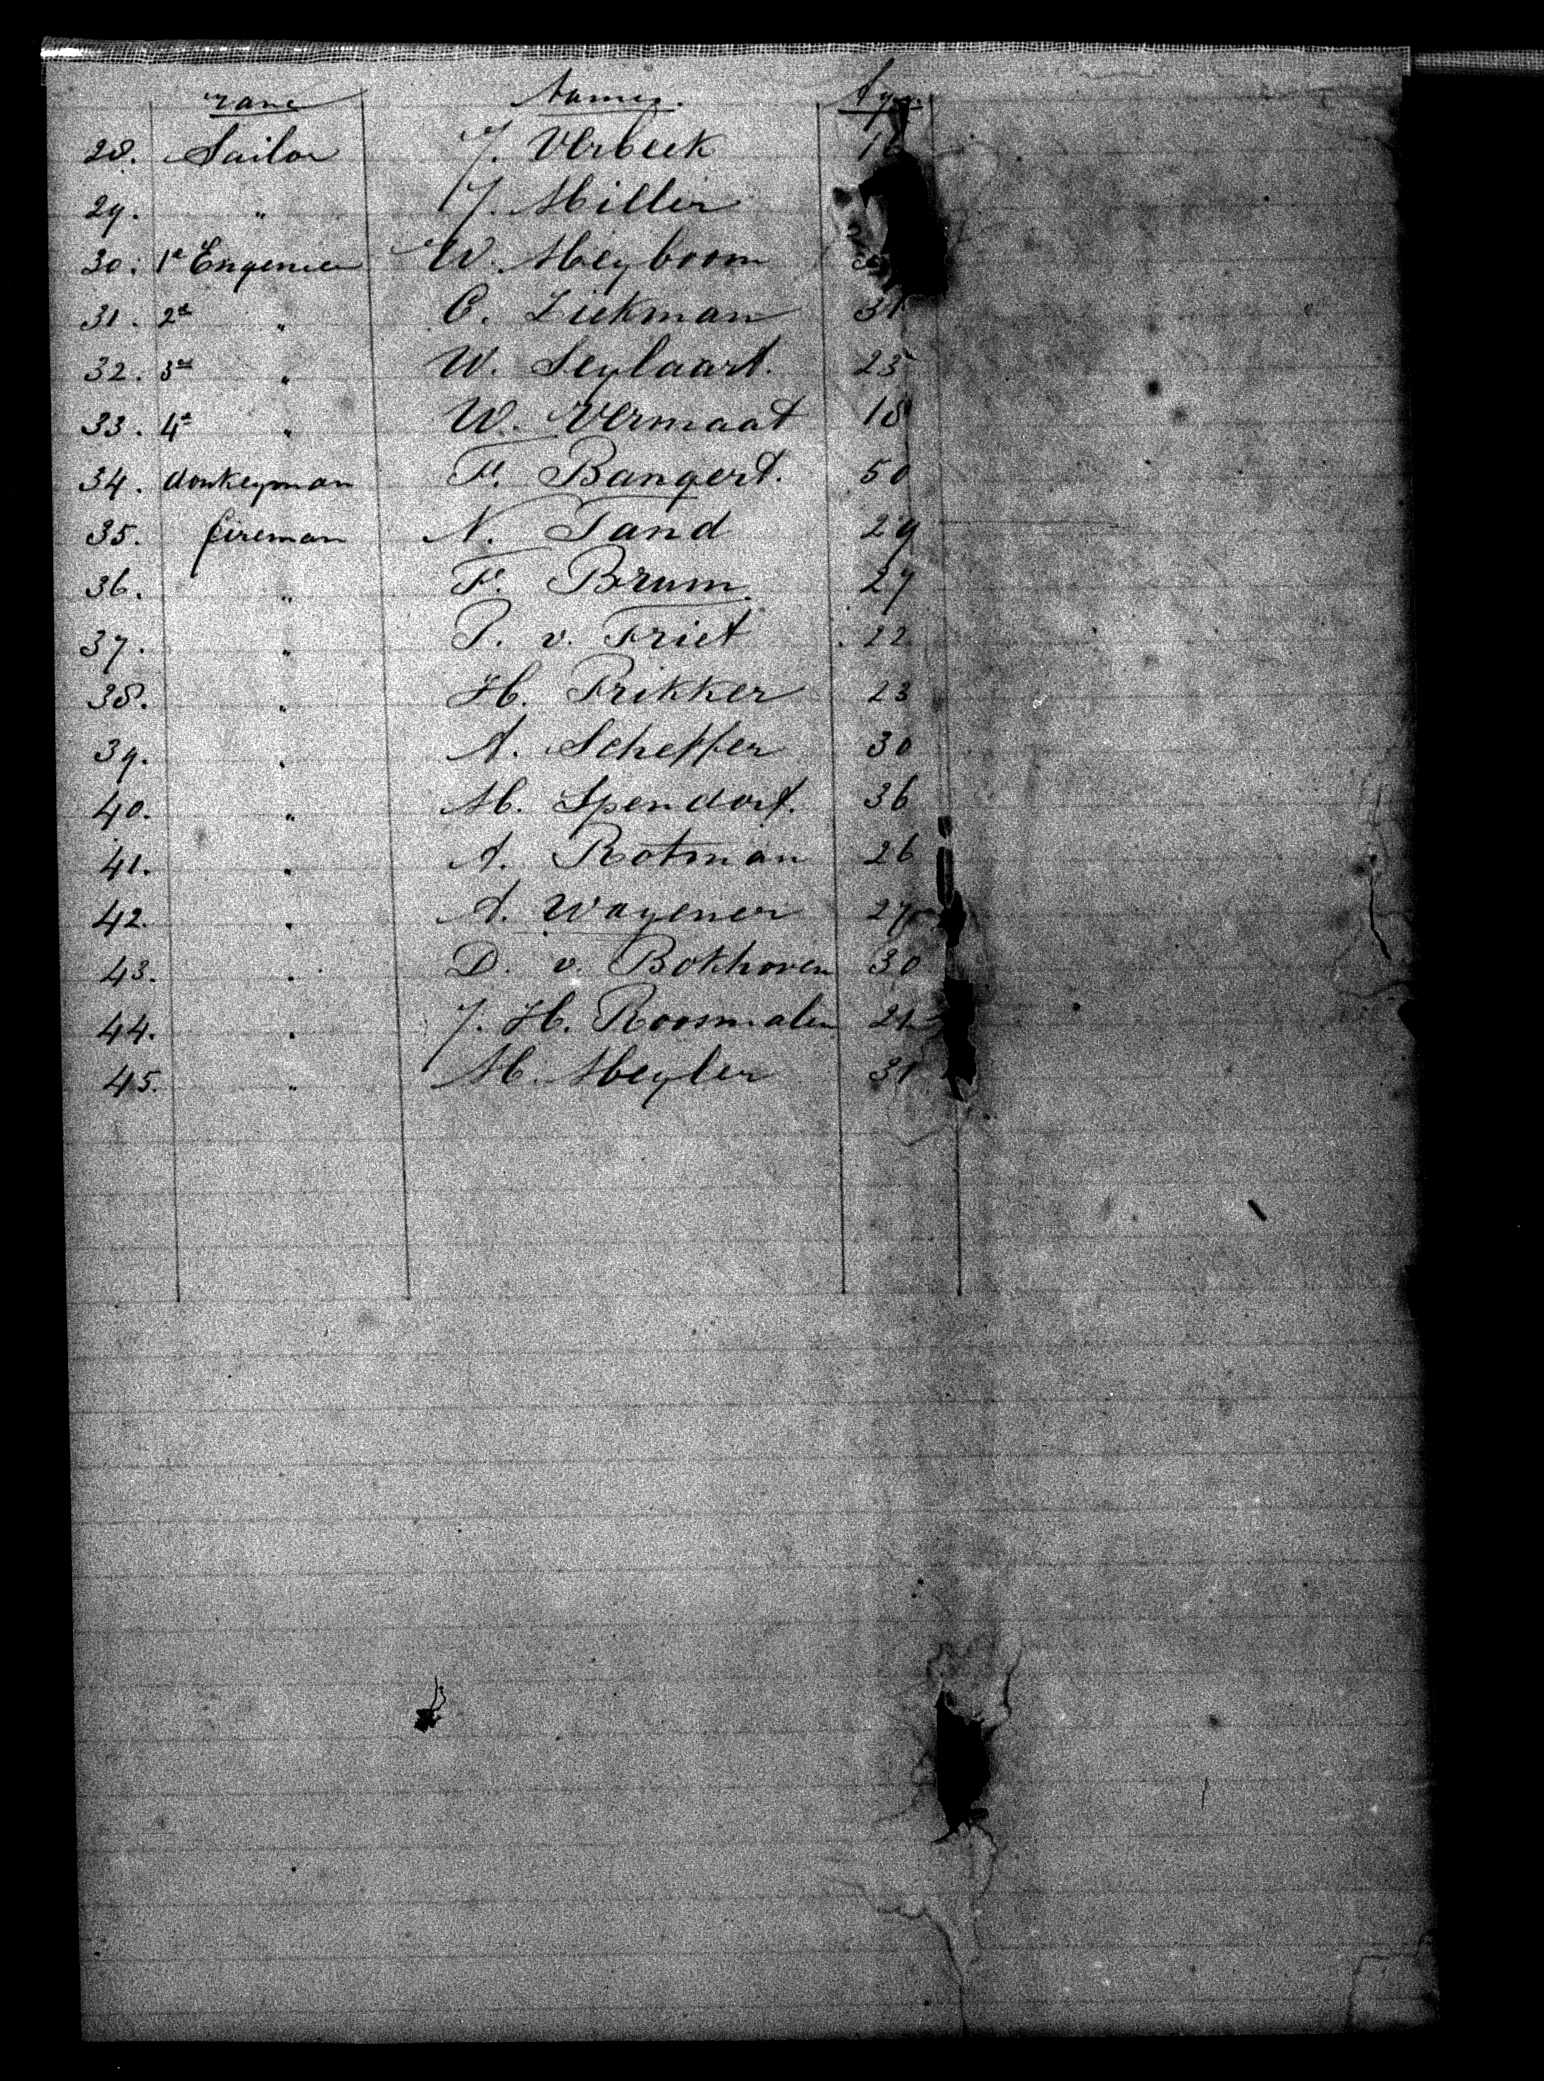 rane Names. Age.
28. Sailor J. Verbeek 16
29. " J. Miller
30. 1e Engenier W. Meyboom
31. 2d " C. Ziekman 31
32. 3d " W. Seylaart. 25
33. 4t " W. Vermaat 18
34. donkeyman F. Bangert. 50
35. fireman N. Tand 29
36. " F. Brum. 27
37. " P. v. Friet 22
38. " H. Frikker 23
39. " A. Scheffer 30
40. " M. Spendorf. 36
41. " A. Rotman 26
42. " A. Wagener 27
43. " D. v. Bokhoven 30
44. " J. H. Roosmalen 21
45. " M. Meyler 31